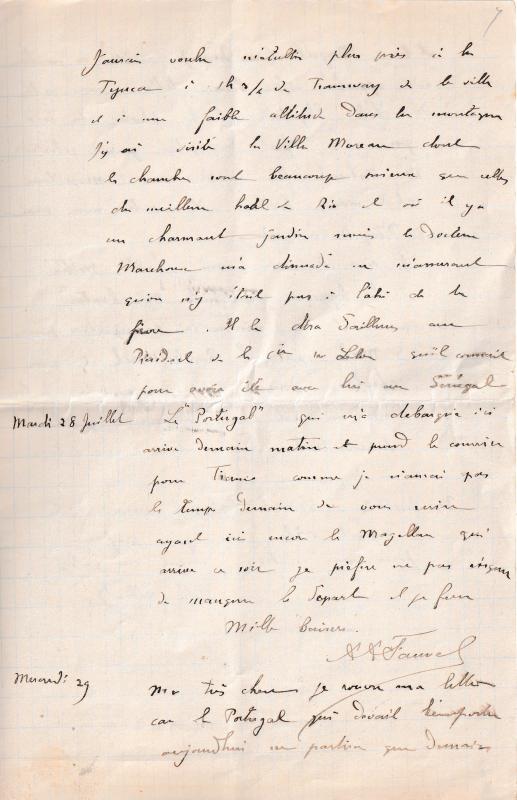 7
J'aurais voulu m'installer plus près à la
Tijuca à 1h 3/4 de Tramway de la ville
et à une faible altitude dans la montagne
J'y ai visité la Villa Moreau dont
les chambres sont beaucoup mieux que celles
du meilleur hotel de Rio et où il y a
un charmant jardin mais le Docteur
Marchoux m'a dissuadé en m'assurant
qu'on n'y était pas à l'abri de la
fièvre. Il le dira d'ailleurs au
Président de la Cie qu'il connait
pour avoir été avec lui au Sénégal
Mardi 28 Juillet Le "Portugal" qui m'a débarqué ici
arrive demain matin et prend le courrier
pour France comme je n'aurai pas
le temps demain de vous écrire
ayant ici encore le Magellan qui
arrive ce soir je préfère ne pas risquer
de manquer le départ et je ferme
Mille baisers.
A A Fauvel
Mercredi 29 Mes très chers je rouvre ma lettre
car le Portugal qui devait l'emporter
aujourd'hui ne partira que demain